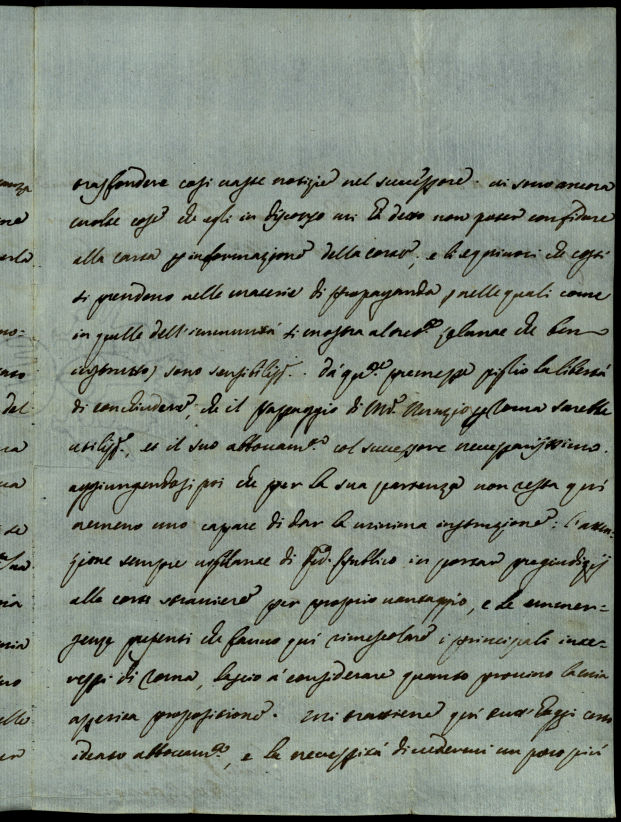 trasfondere cosi vaste notizie nel successore. vi sono ancora
molte cose che egli in discorso mi ha detto non poter confidare
alla carta p informazione della corte, e li equivoci che costì
si prendono nelle materie di propaganda (nelle quali come
in quelle dell'immunità si mostra altret.to zelante che ben
instrutto) sono sensibiliss. Da q.te premesse piglio la libertà
di concludere, che il passaggio di M.r Nunzio p Roma sarebbe
utiliss., et il suo abboccam.to col successore necessarijssimo.
aggiungendosi poi che per la sua partenza non resta quì
nemeno uno capace di dar la minima instruzione: l'atten-
zione sempre vigilante di Pubblico in portar pregiudizij
alle corti straniere per proprio vantaggio, e le emmer-
genze presenti che fanno quì rimescolare i principali inte-
ressi di Roma, lascio à considerare quanto provino la mia
asserita proposizione. mi trattiene quì tutt'oggi
ideato abboccam.to, e la necessità di vedermi un poco più
no:
del